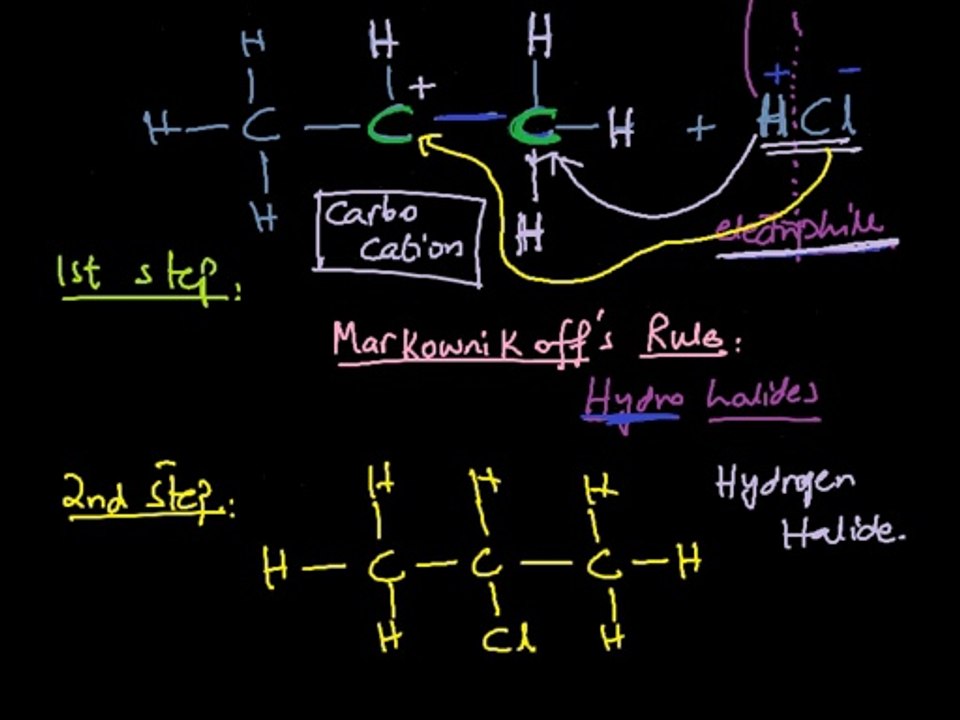 H H H
+ + −
H — C — C — C — H + HCl
H H
Carbo
Cation
electrophile
1st step:
Markownikoff's Rule:
Hydro halides
2nd Step:
H H H
Hydrogen
Halide.
H — C — C — C — H
H Cl H